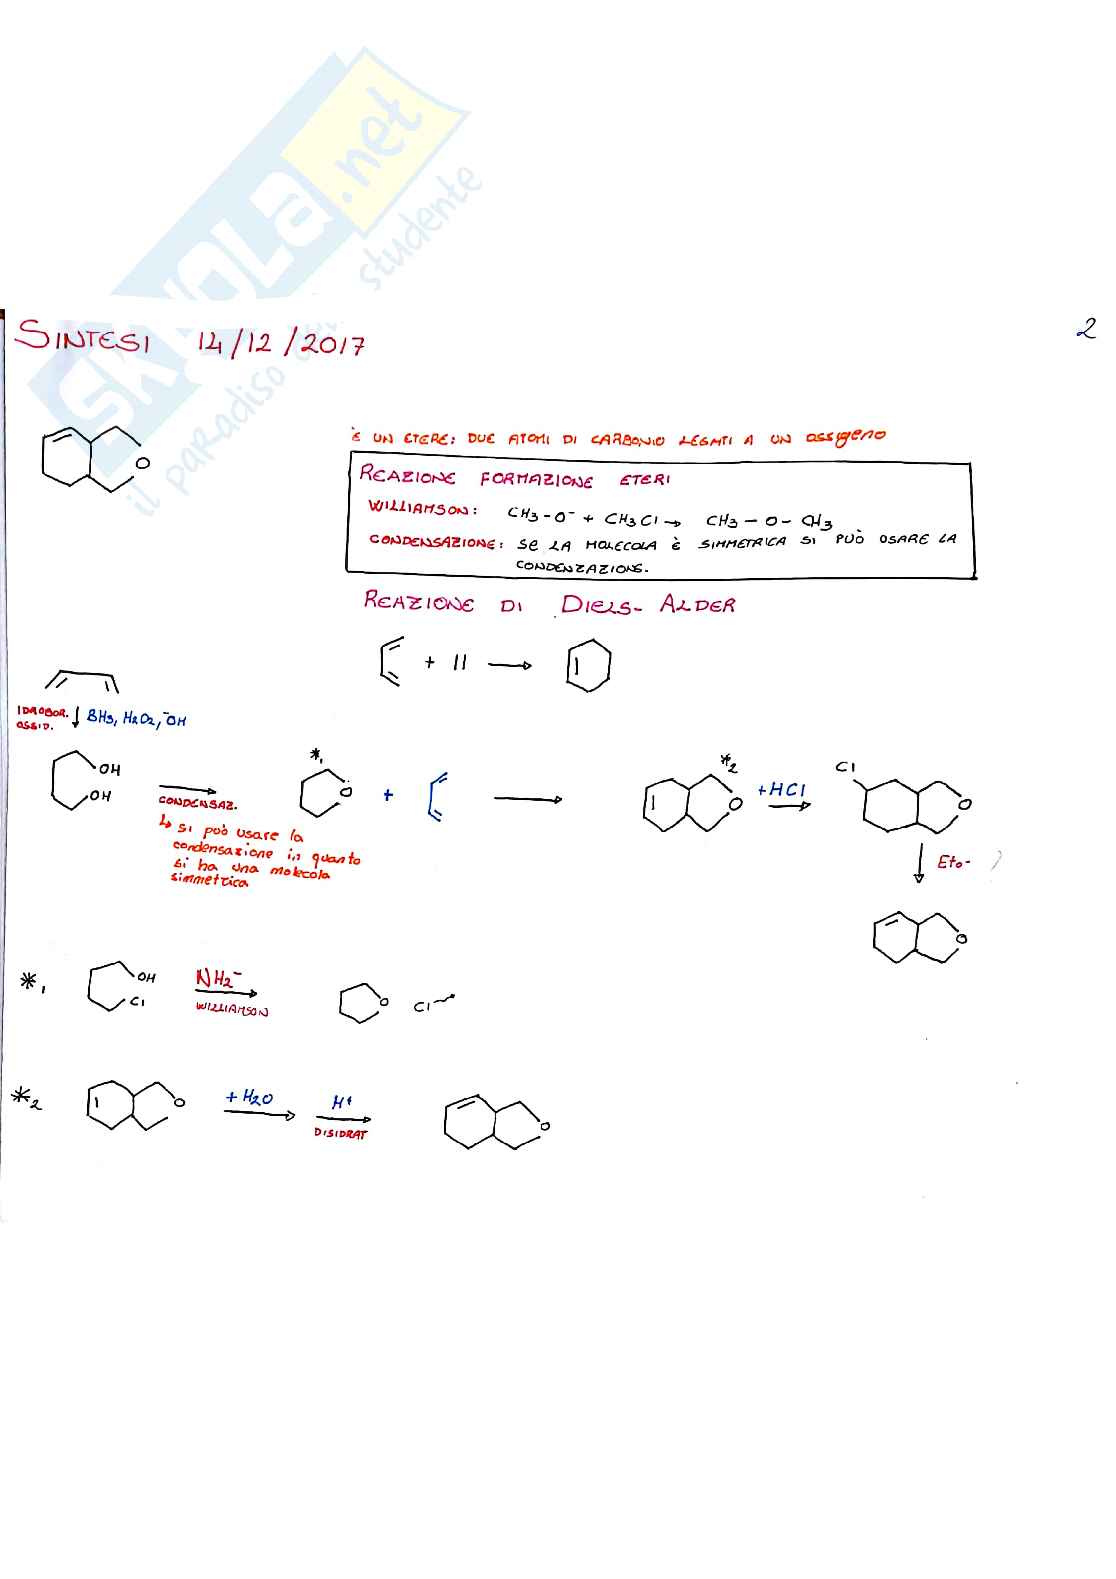 SKUOLA.net
il paradiso dello studente
SINTESI 14/12/2017
2
È UN ETERE: DUE ATOMI DI CARBONIO LEGATI A UN OSSIGENO
REAZIONE FORMAZIONE ETERI
WILLIAMSON: CH3-O⁻ + CH3Cl → CH3-O-CH3
CONDENSAZIONE: SE LA MOLECOLA È SIMMETRICA SI PUÒ USARE LA
CONDENZAZIONE.
REAZIONE DI DIELS-ALDER
+ →
IDROBOR.
OSSID.
↓ BH3, H2O2, ⁻OH
OH
OH
→
CONDENSAZ.
↳ si può usare la
condensazione in quanto
si ha una molecola
simmetrica
*1
O
+
→
*2
O
+HCl
→
Cl
O
↓ EtO-
O
*1
OH
Cl
NH2⁻
→
WILLIAMSON
O
Cl
*2
O
+H2O
→
H+
→
DISIDRAT
O